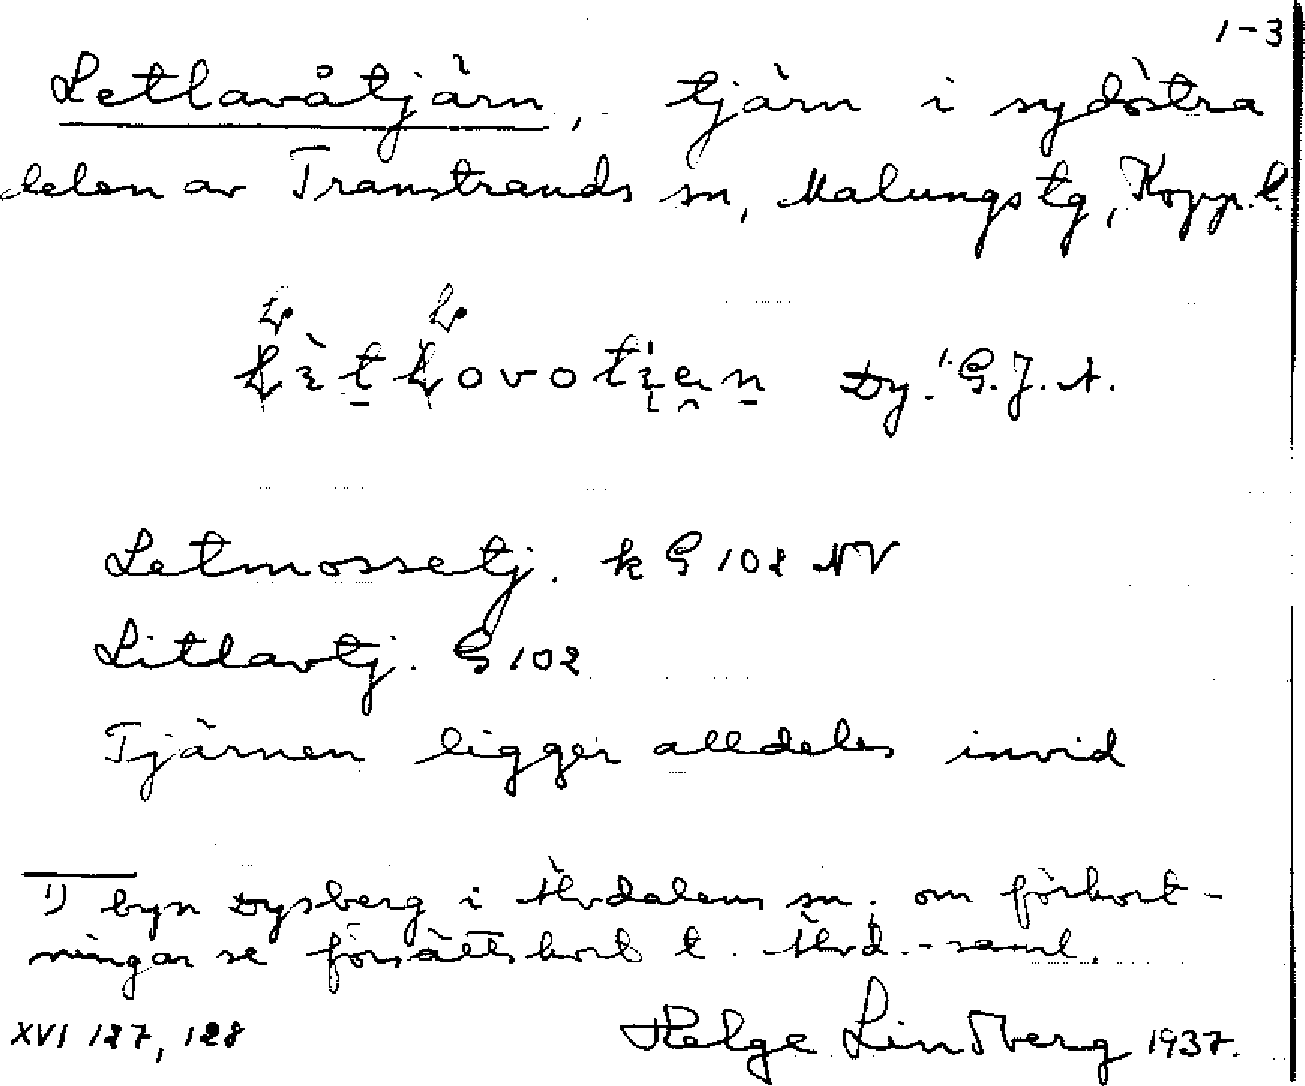 1-3
Letlavåtjärn, tjärn i sydöstra
delen av Transtrands sn, Malungs tg, Kopp. l.
Dy.¹ G.J.A.
Letmossetj. k G 102 NV
Litlavtj. G 102
Tjärnen ligger alldeles invid
1) byn Dysberg i Älvdalens sn; om förkort-
ningar se försättskort t. Älvd.-saml.
XVI 127, 128 Helge Lindberg 1937.